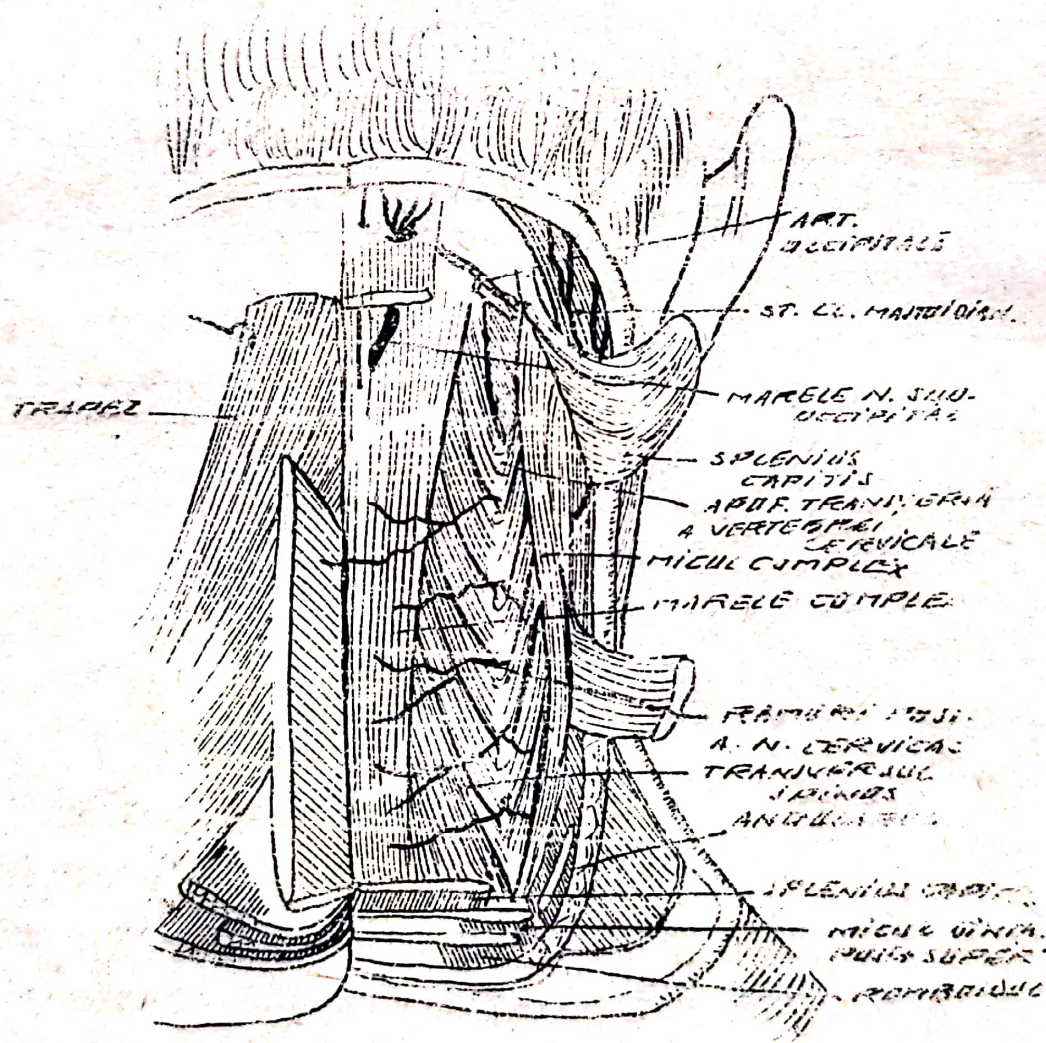 ART.
OCCIPITALE
ST. CL. MASTOIDIAN.
TRAPEZ
MARELE N. SUB-
OCCIPITAL
SPLENIUS
CAPITIS
APOF. TRANSVERSĂ
A VERTEBREI
CERVICALE
MICUL COMPLEX
MARELE COMPLE
RAMURI POST.
A. N. CERVICAL
TRANSVERSUL
SPINOS
ANGULARUL
SPLENIUS
MICUL DINTA.
SUPER
ROMBOIDUL